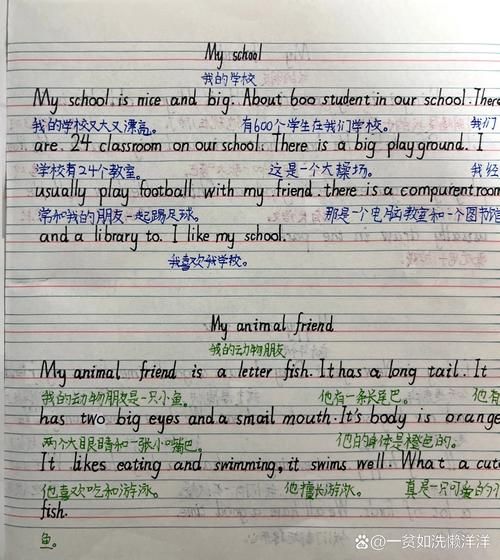 My school
我的学校
My school is nice and big. About 600 student in our school. There
我的学校又大又漂亮。 有600个学生在我们学校。 我们
are 24 classroom on our school. There is a big playground. I
学校有24个教室。 这是一个大操场。 我经
usually play football with my friend. there is a compurent room
常和我的朋友一起踢足球。 那是一个电脑教室和一个图书馆
and a library to. I like my school.
我喜欢我学校。
My animal friend
我的动物朋友
My animal friend is a letter fish. It has a long tail. It
我的动物朋友是一只小鱼。 他有一条长尾巴。 他有
has two big eyes and a smail mouth. It's body is orange
两个大眼睛和一张小嘴巴。 他的身体是橙色的。
It likes eating and swimming, it swims well. What a cute
他喜欢吃和游泳。 他擅长游泳。 真是一只可爱的小
fish.
鱼。
一贫如洗懒洋洋